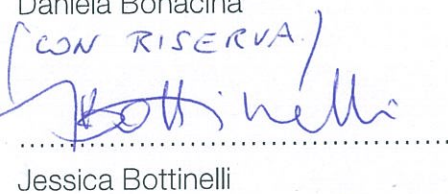 Daniela Bonacina
(CON RISERVA)
JBottinelli
Jessica Bottinelli